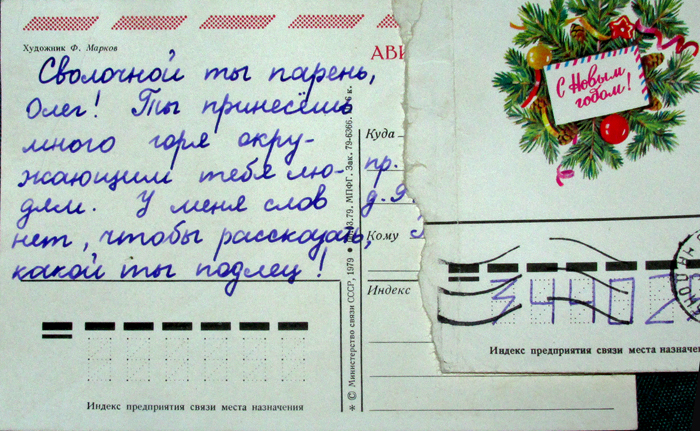 Художник Ф. Марков
АВИ
Сволочной ты парень,
Олег! Ты принесёшь
много горя окру-
жающим тебя лю-
дям. У меня слов
нет, чтобы рассказать,
какой ты подлец!
Куда
пр.
д. 9.
Кому
Индекс
© Министерство связи СССР, 1979
МПФГ. Зак. 79-6366.
Индекс предприятия связи места назначения
С Новым
годом!
34402
Индекс предприятия связи места назначен